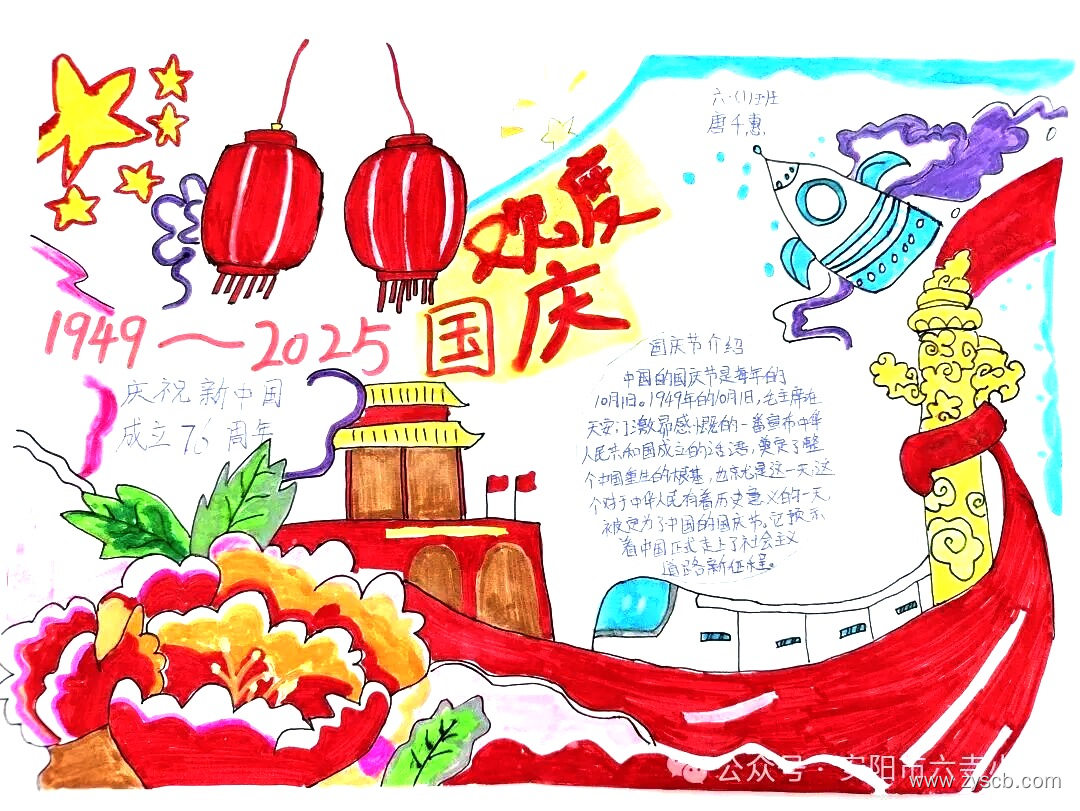 六·(1)班
唐千惠
欢度
国庆
1949～2025
庆祝新中国
成立76周年
国庆节介绍
中国的国庆节是每年的
10月1日。1949年的10月1日，毛主席在
天安门激昂感慨的一番宣布中华
人民共和国成立的话语，奠定了整
个中国重生的根基，也就是这一天，这
个对于中华人民有着历史意义的一天，
被定为了中国的国庆节。它预示
着中国正式走上了社会主义
道路新征程。
公众号·安阳市六幸小
www.zyscb.com